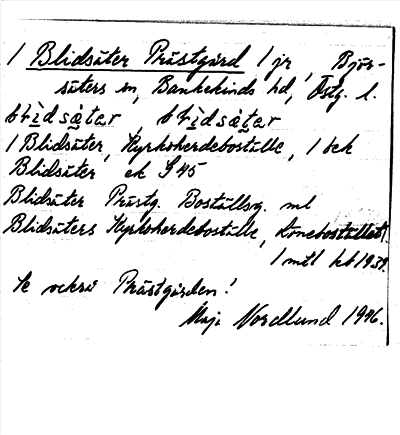 1 Blidsäter Prästgård 1 jr, Björ-
säters sn, Bankekinds hd, Östg. l.
blìdsä̀tar blìdsä̀tar
1 Blidsäter, Kyrkoherdeboställe, 1 bek
Blidsäter ek S45
Blidsäter Prästg. Boställsg. ml
Blidsäters Kyrkoherdeboställe, Lönebostället
1 mtl kb 1939.
Se också Prästgården!
Maja Nordlund 1946.